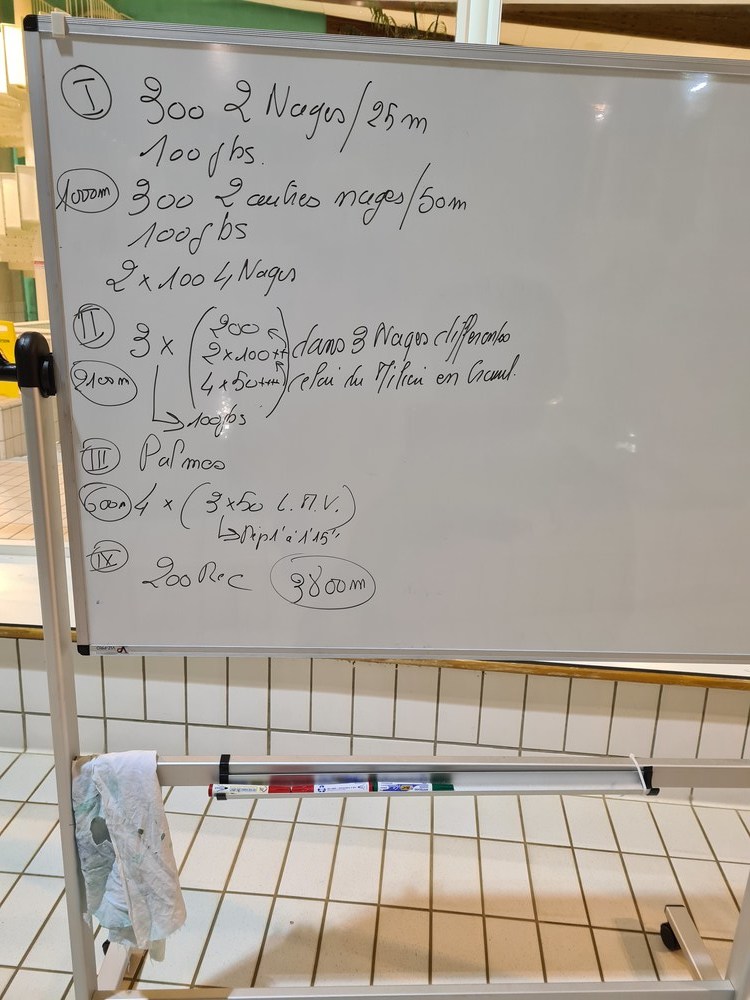 I 300 2 Nages/25m
100 jbs.
1000m 300 2 autres nages/50m
100 jbs
2 x 100 4 Nages
II 3 x ( 200
2 x 100 ++ dans 3 Nages différentes
2100m 4 x 50 +++ celui du Milieu en Crawl.
100 jbs
III Palmes
600m 4 x ( 3 x 50 L.M.V. )
Dép 1' à 1'15"
IX 200 Rec 3800m